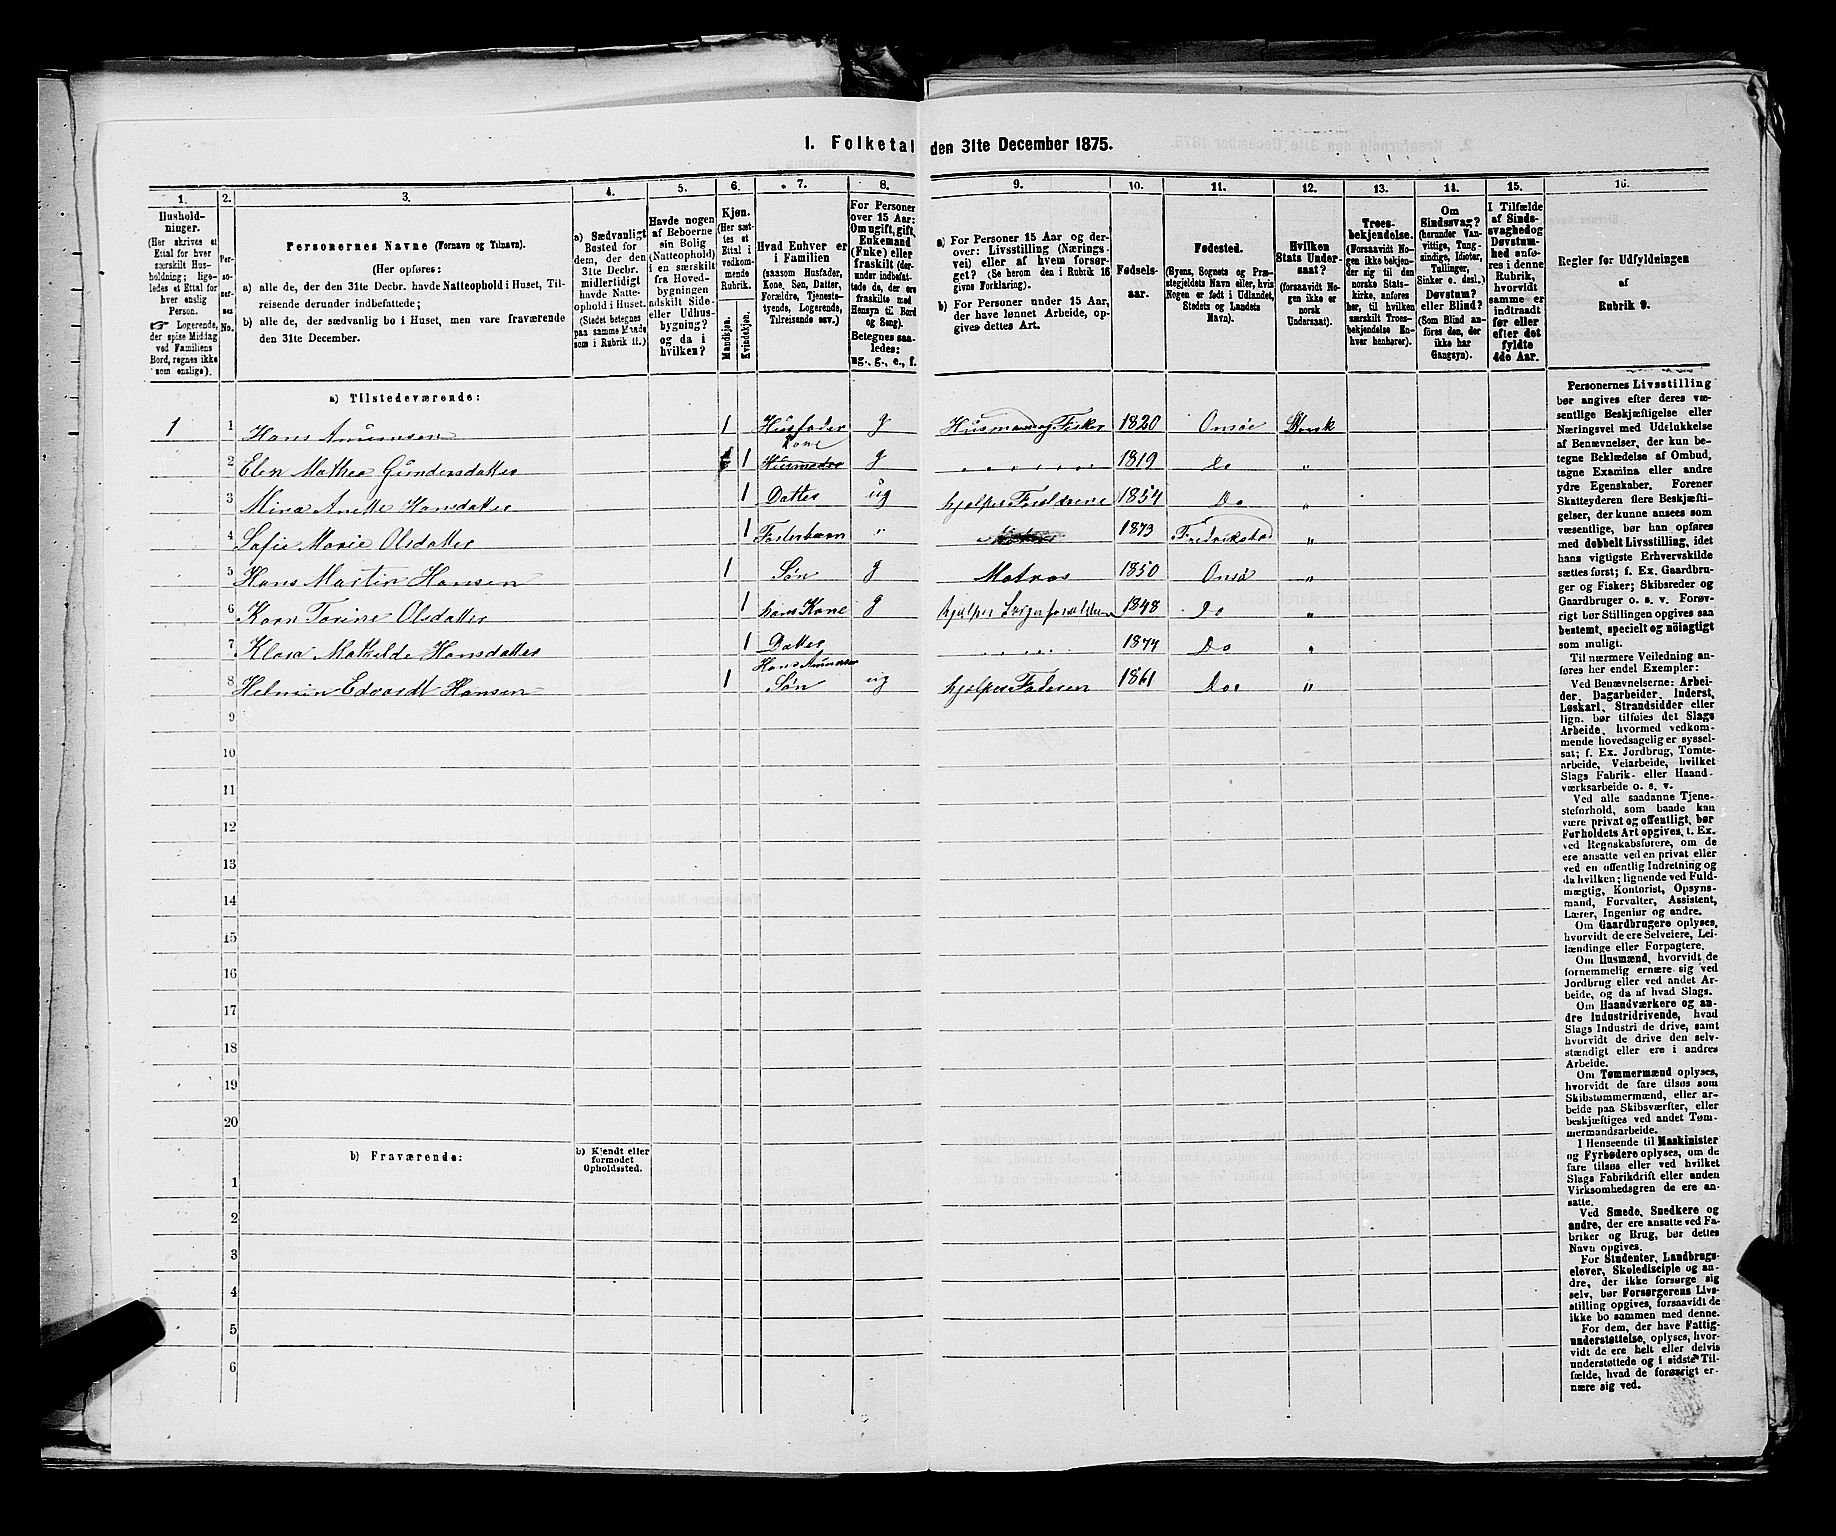 1. Folketal den 31te December 1875.
1.
2.
3.
4.
5.
6.
7.
8.
9.
10.
11.
12.
13.
14.
15.
16.
Husholdninger.
(Her skrives et
Ettal for hver
særskilt Husholdning;
ligeledes et Ettal
for hver
enslig
Person.
☞ Logerende,
der spise Middag
ved Familiens
Bord, regnes ikke
som enslige).
Personernes No.
Personernes Navne (Fornavn og Tilnavn).
(Her opføres:
a) alle de, der den 31te Decbr. havde Natteophold i Huset, Tilreisende derunder indbefattede;
b) alle de, der sædvanlig bo i Huset, men vare fraværende
den 31te December.
a) Sædvanligt
Bosted for
dem, der den
31te Decbr.
midlertidigt
havde Natteophold
i Huset.
(Stedet betegnes
paa samme Maade
som i Rubrik 11.)
Havde nogen
af Beboerne
sin Bolig
(Natteophold)
i en særskilt
fra Hovedbygningen
adskilt Side-
eller Udhusbygning?
og da i
hvilken?
Kjøn.
(Her sættes
et
Ettal i
vedkommende
Rubrik.
Mandkjøn.
Kvindekjøn.
Hvad Enhver er
i Familien
(saasom Husfader,
Kone, Søn, Datter,
Forældre, Tjenestetyende,
Logerende,
Tilreisende osv.)
For Personer
over 15 Aar:
Om ugift, gift,
Enkemand
(Enke) eller
fraskilt (derunder
indbefattede
de, der ere
fraskilte med
Hensyn til Bord
og Seng).
Betegnes saaledes:
ug., g., e., f.
a) For Personer 15 Aar og derover:
Livsstilling (Næringsvei)
eller af hvem forsørget?
(Se herom den i Rubrik 16
givne Forklaring).
b) For Personer under 15 Aar,
der have lønnet Arbeide, opgives
dettes Art.
Fødselsaar.
Fødested.
(Byens, Sognets og Præstegjeldets
Navn eller, hvis
Nogen er født i Udlandet,
Stedets og Landets
Navn).
Hvilken
Stats Undersaat?
(forsaavidt Nogen
ikke er
norsk
Undersaat).
Troesbekjendelse.
(Forsaavidt Nogen
ikke bekjender
sig til den
norske Statskirke,
anføres
her, til hvilken
særskilt Troesbekjendelse
Enhver
henhører).
Om
Sindssvag?
(herunder Vanvittige,
Tungsindige,
Idioter,
Tullinger,
Sinker o. desl.)
Døvstum?
eller Blind?
(Som Blind anføres
den, der
ikke har
Gangsyn).
I Tilfælde
af Sindssvaghed
og
Døvstumhed
anføres
i denne
Rubrik,
hvorvidt
samme er
indtraadt
før eller
efter det
fyldte
4de Aar.
Regler for Udfyldningen
af
Rubrik 9.
a) Tilstedeværende:
1 1 Hans Amumsen 1 Husfader g Husmand og Fisker 1820 Onsøe Norsk
Kone
2 Elen Mathea Gundersdatter 1 Husmoder g " 1819 Do "
3 Mina Anette Hansdatter 1 Datter ug hjelper Forældrene 1854 Do "
4 Sofie Marie Olsdatter 1 Fosterbarn " 1873 Fredrikstad "
5 Hans Martin Hansen 1 Søn g Matros 1850 Onsø "
6 Karn Torine Olsdatter 1 hans Kone g hjelper Svigerforældren 1848 Do "
7 Klara Mathilde Hansdatter 1 Datter 1874 Do "
Hans Amumsen
8 Helmin Edvardt Hansen 1 Søn ug hjelper Faderen 1861 Do "
9
10
11
12
13
14
15
16
17
18
19
20
b) Fraværende:
b) Kjendt eller
formodet
Opholdssted.
1
2
3
4
5
6
Personernes Livsstilling
bør angives efter deres væsentlige
Beskjæftigelse eller
Næringsvei med Udelukkelse
af Benævnelser, der kun betegne
Beklædelse af Ombud,
tagne Examina eller andre
ydre Egenskaber. Forener
Skatteyderen flere Beskjæftigelser,
der kunne ansees som
væsentlige, bør han opføres
med dobbelt Livsstilling, idet
hans vigtigste Erhvervskilde
sættes først; f. Ex. Gaardbruger
og Fisker; Skibsreder og
Gaardbruger o. s. v. Forøvrigt
bør Stillingen opgives saa
bestemt, specielt og nöiagtigt
som muligt.
Til nærmere Veiledning anføres
her endel Exempler:
Ved Benævnelserne: Arbeider,
Dagarbeider, Inderst,
Løskarl, Strandsidder eller
lign. bør tilføies det Slags
Arbeide, hvormed vedkommende
hovedsagelig er sysselsat;
f. Ex. Jordbrug, Tomtearbeide,
Veiarbeide, hvilket
Slags Fabrik- eller Haandværksarbeide
o. s. v.
Ved alle saadanne Tjenesteforhold,
som baade kan
være privat og offentligt, bør
Forholdets Art opgives, t. Ex.
ved Regnskabsførere, om de
ere ansatte ved en privat eller
ved en offentlig Indretning og
da hvilken; lignende ved Fuldmægtig,
Kontorist, Opsynsmand,
Forvalter, Assistent,
Lærer, Ingeniør og andre.
Om Gaardbrugere oplyses,
hvorvidt de ere Selveiere, Leilændinge
eller Forpagtere.
Om Husmænd, hvorvidt de
fornemmelig ernære sig ved
Jordbrug eller ved andet Arbeide,
og da af hvad Slags.
Om Haandværkere og andre
Industridrivende, hvad
Slags Industri de drive, samt
hvorvidt de drive den selvstændigt
eller ere i andres
Arbeide.
Om Tømmermænd oplyses,
hvorvidt de fare tilsøs som
Skibstømmermænd, eller arbeide
paa Skibsværfter, eller
beskjæftiges ved andet Tømmermandsarbeide.
I Henseende til Maskinister
og Fyrbødere oplyses, om de
fare tilsøs eller ved hvilket
Slags Fabrikdrift eller anden
Virksomhedsgren de ere ansatte.
Ved Smede, Snedkere og
andre, der ere ansatte ved Fabriker
og Brug, bør dettes
Navn opgives.
For Studenter, Landbrugselever,
Skoledisciple og andre,
der ikke forsørge sig
selv, bør Forsørgerens Livsstilling
opgives, forsaavidt de
ikke bo sammen med denne.
For dem, der have Fattigunderstøttelse,
oplyses, hvorvidt
de ere helt eller delvis
understøttede og i sidste Tilfælde,
hvad de forøvrigt ernære
sig ved.